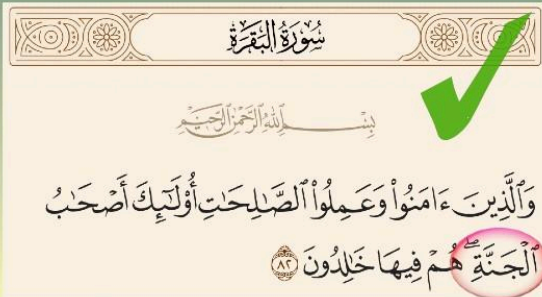 سُورَةُ البَقَرَةِ
بِسْمِ ٱللَّهِ ٱلرَّحْمَٰنِ ٱلرَّحِيمِ
وَٱلَّذِينَ ءَامَنُواْ وَعَمِلُواْ ٱلصَّٰلِحَٰتِ أُوْلَٰٓئِكَ أَصْحَٰبُ
ٱلْجَنَّةِۖ هُمْ فِيهَا خَٰلِدُونَ ٨٢